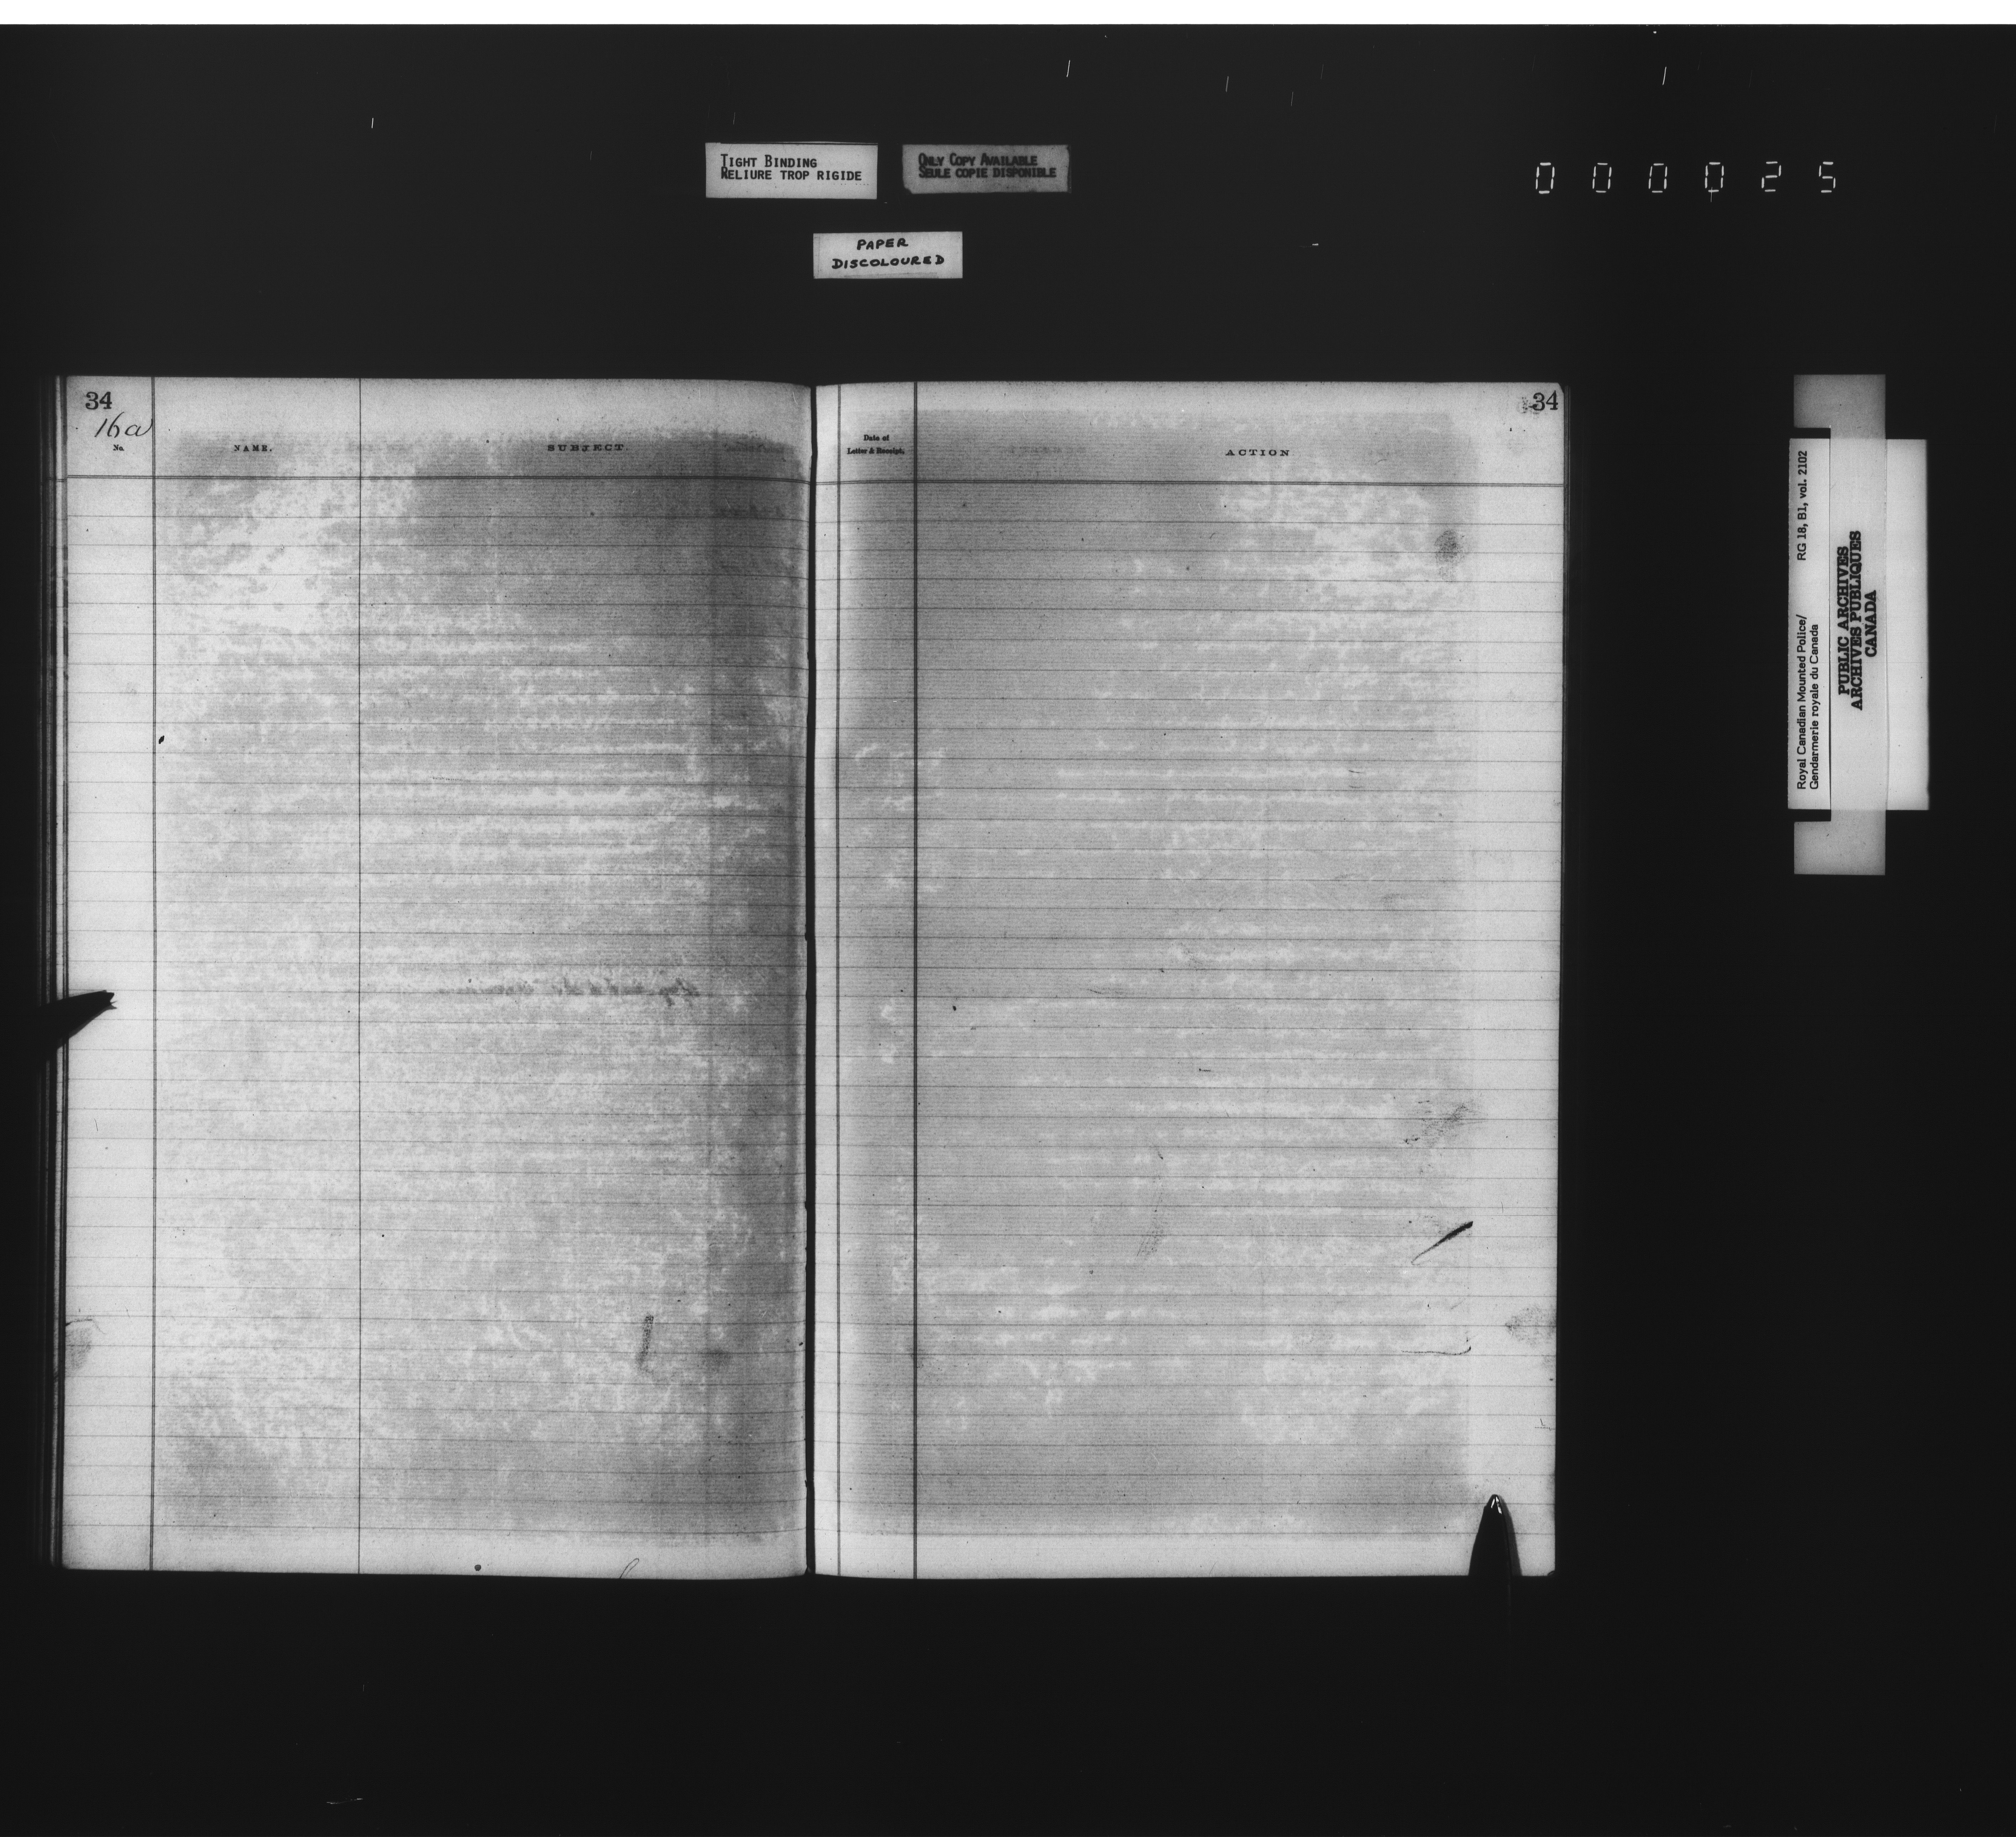 TIGHT BINDING
RELIURE TROP RIGIDE
ONLY COPY AVAILABLE
SEULE COPIE DISPONIBLE
000025
PAPER
DISCOLOURED
34
16a
No.
NAME.
SUBJECT.
Date of
Letter & Receipt.
ACTION
34
RG 18, B1, vol. 2102
Royal Canadian Mounted Police/
Gendarmerie royale du Canada
PUBLIC ARCHIVES
ARCHIVES PUBLIQUES
CANADA